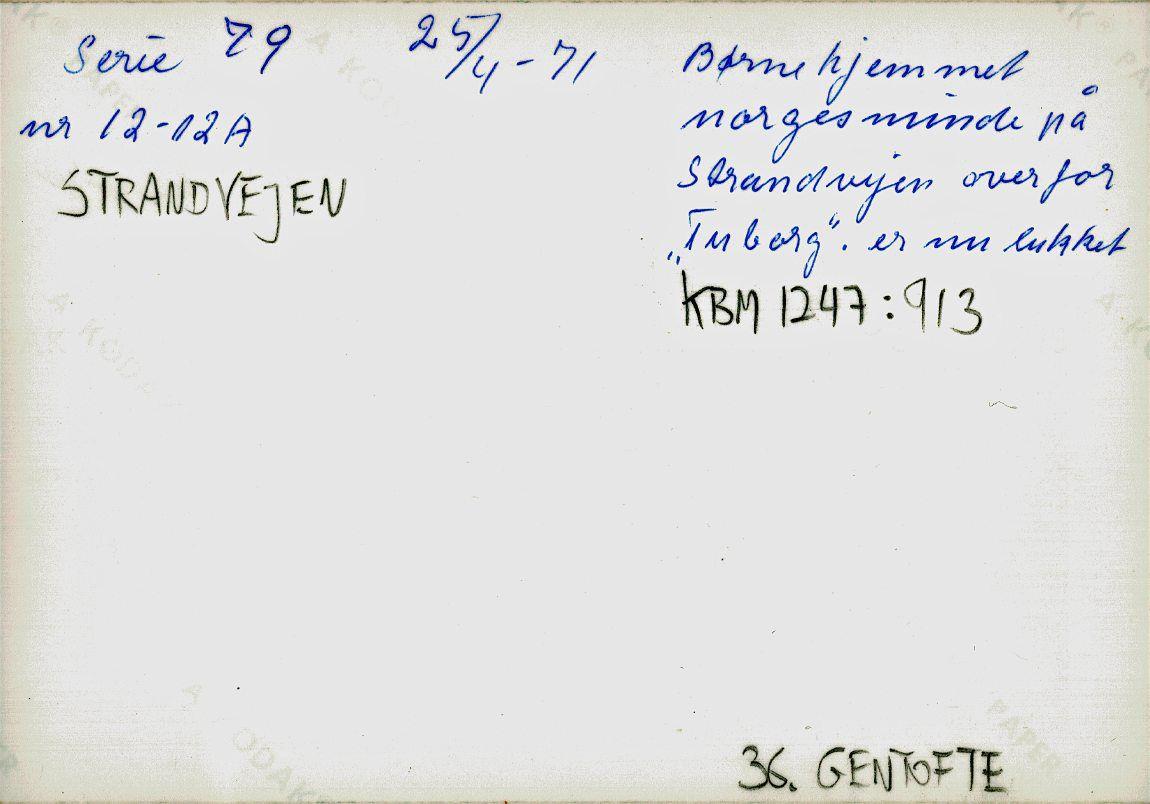 Serie 79 25/4-71
nr 12-12A
STRANDVEJEN
Børnehjemmet
norgesminde på
Strandvejen overfor
„Tuborg“. er nu lukket
KBM 1247:913
36. GENTOFTE